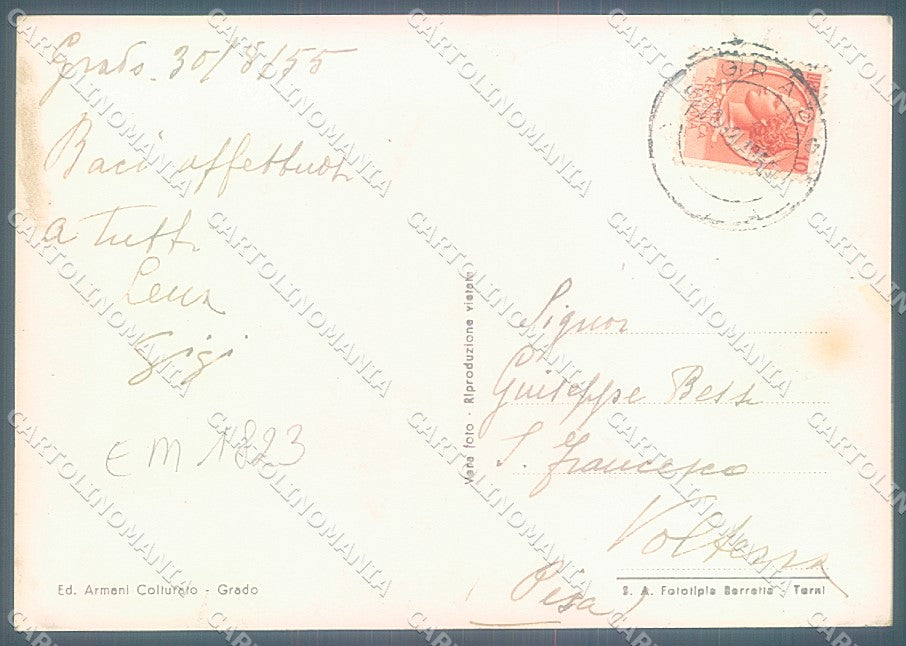 Grado 30/8/55
Baci affettuosi
a tutti
Lena
Gigi
EM 1823
Ed. Armani Colturato - Grado
Vera foto - Riproduzione vietata
GRADO
REPVBBLICA
ITALIANA
10
Signor
Guiseppe Bessi
S. Francesco
Volterra
(Pisa)
S. A. Fototipia Berretta - Terni
CARTOLINOMANIA